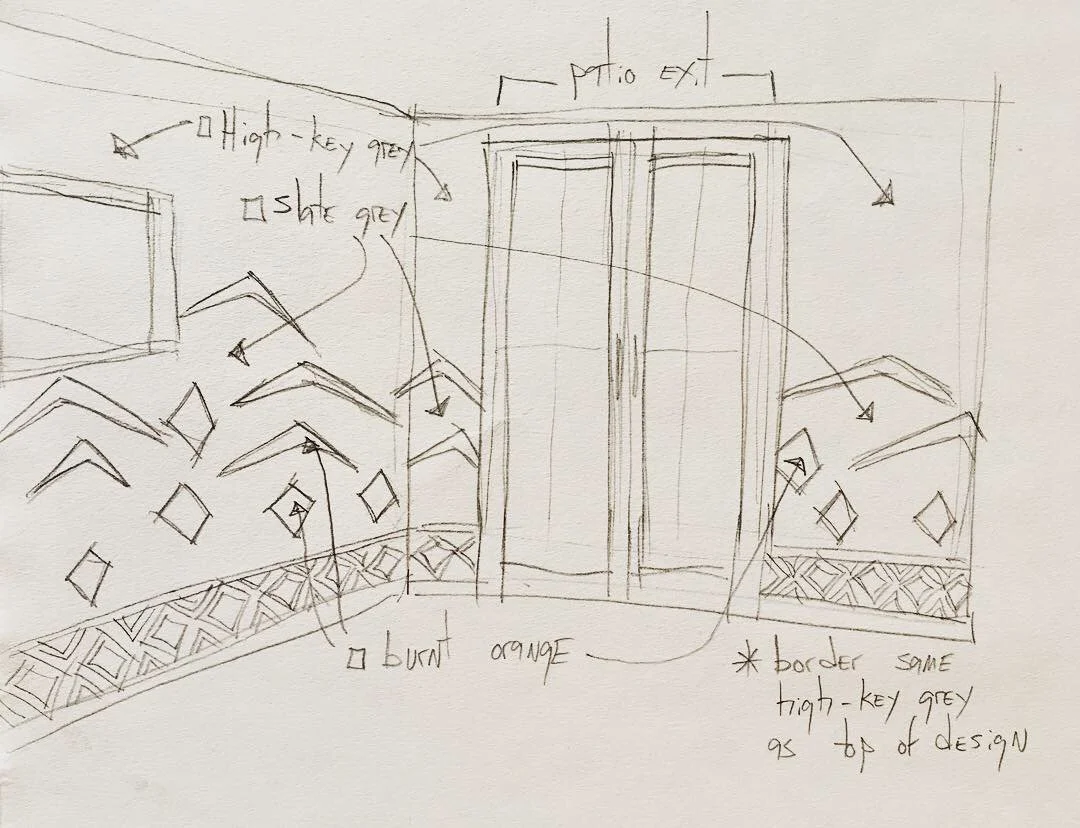 patio exit
High-key grey
slate grey
burnt orange
* border same
high-key grey
as top of design